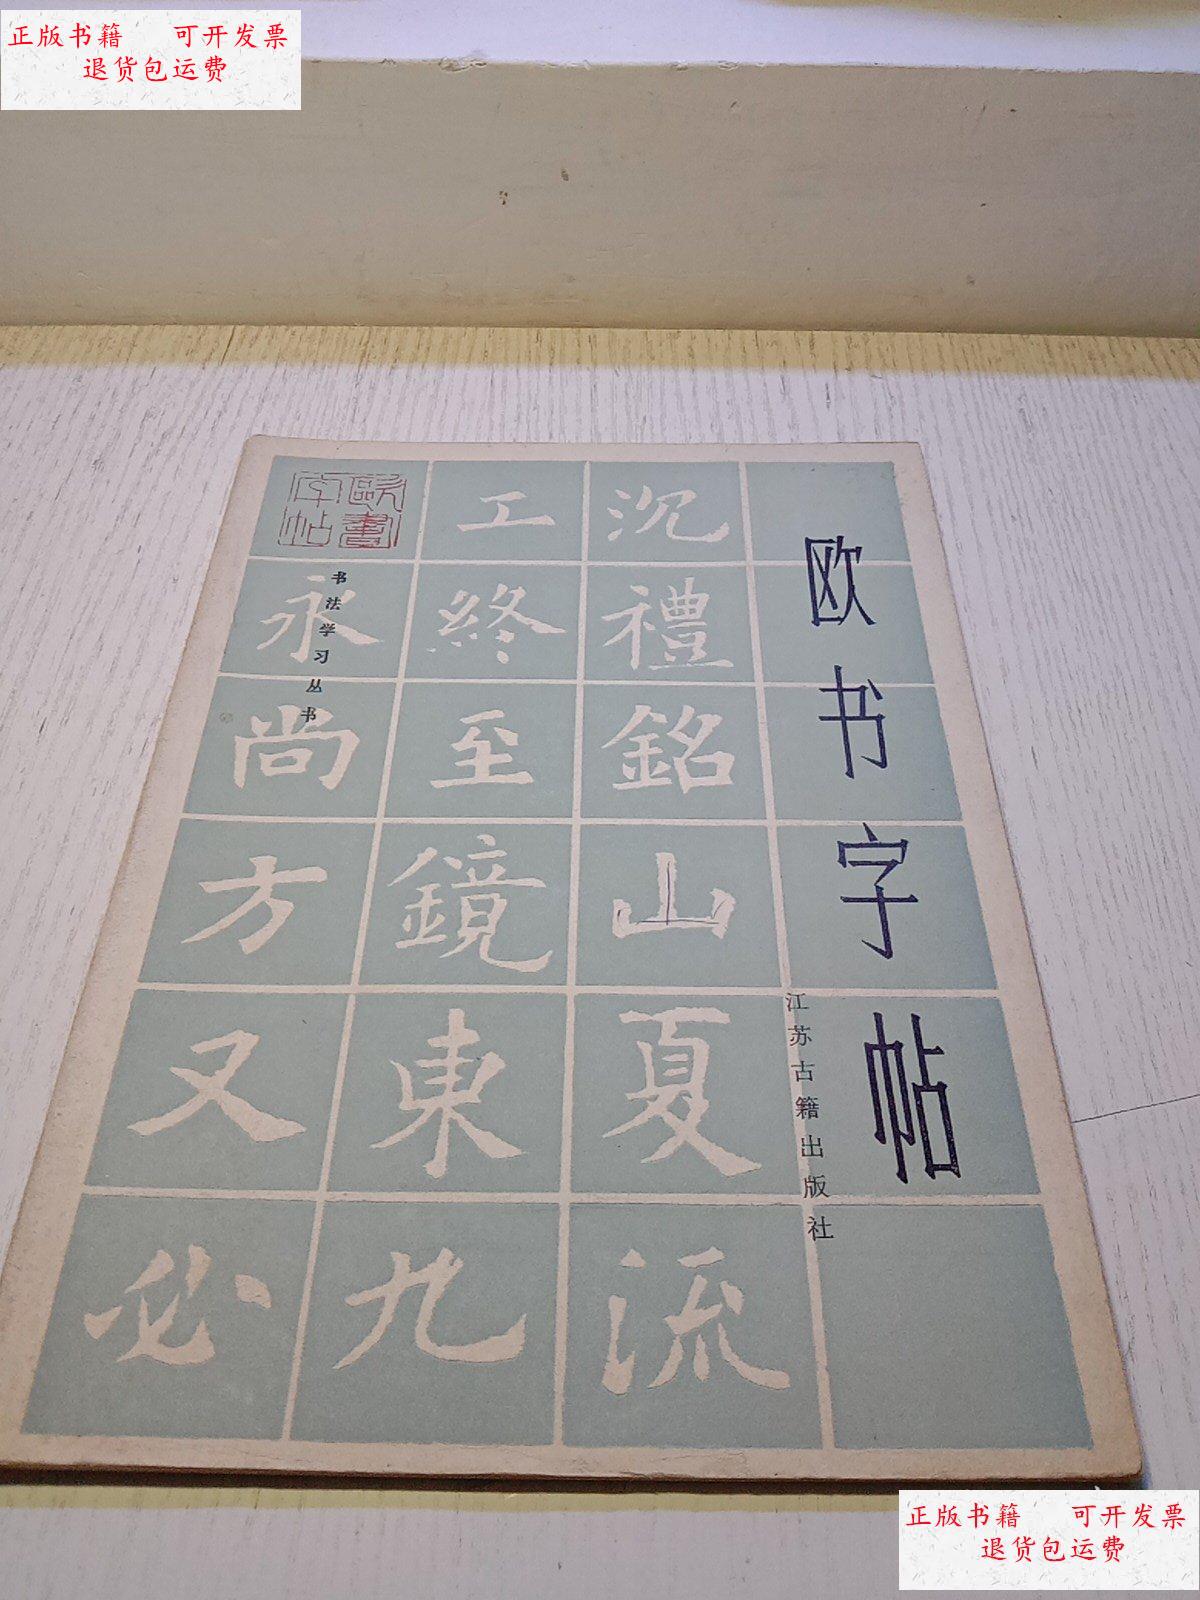 正版书籍 可开发票
退货包运费
欧书字帖
江苏古籍出版社
沉禮銘山夏流
工終至鏡東九
永尚方又必
歐書字帖
书法学习丛书
正版书籍 可开发票
退货包运费